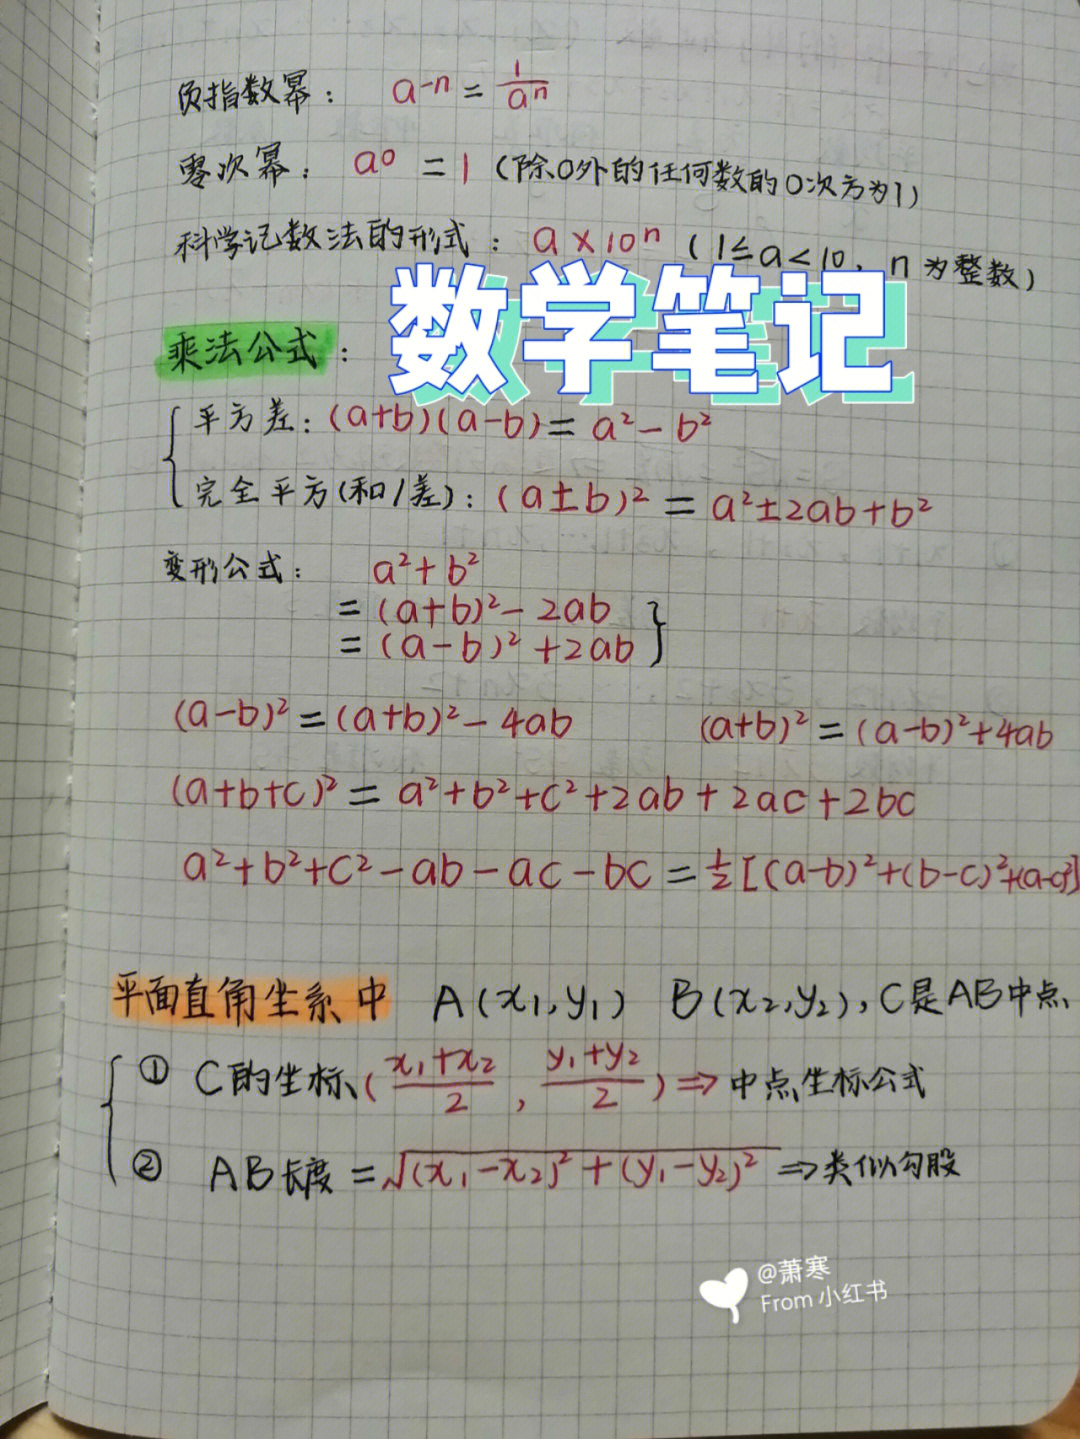 负指数幂： a⁻ⁿ = 1/aⁿ
零次幂： a⁰ = 1（除0外的任何数的0次方为1）
科学记数法的形式： a×10ⁿ（1≤a<10，n为整数）
数学笔记
乘法公式：
平方差：(a+b)(a-b)=a²-b²
完全平方(和/差)：(a±b)²=a²±2ab+b²
变形公式： a²+b²
=(a+b)²-2ab
=(a-b)²+2ab
(a-b)²=(a+b)²-4ab (a+b)²=(a-b)²+4ab
(a+b+c)²=a²+b²+c²+2ab+2ac+2bc
a²+b²+c²-ab-ac-bc=½[(a-b)²+(b-c)²+(a-c)²]
平面直角坐系中 A(x₁,y₁) B(x₂,y₂),C是AB中点
① C的坐标(x₁+x₂/2 , y₁+y₂/2)⇒中点坐标公式
② AB长度=√(x₁-x₂)²+(y₁-y₂)² ⇒类似勾股
@萧寒
From 小红书